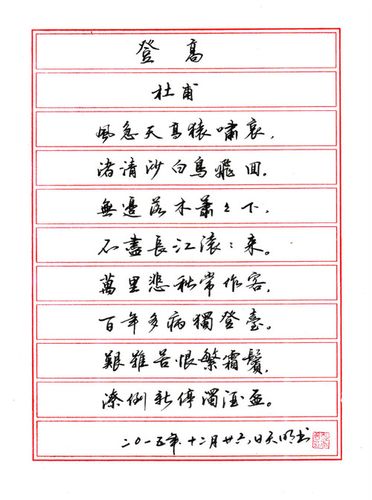 登高
杜甫
風急天高猿嘯哀,
渚清沙白鳥飛回.
無邊落木蕭々下,
不盡長江滾々來。
萬里悲秋常作客,
百年多病獨登臺。
艱難苦恨繁霜鬢,
潦倒新停濁酒盃。
二〇一五年.十二月廿六日天明书